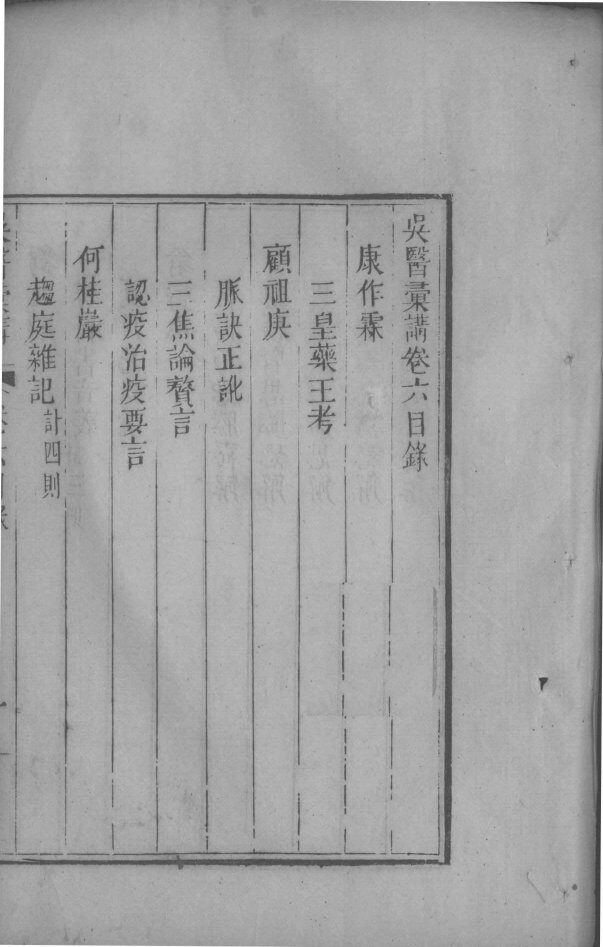 吳醫彙講卷六目錄
康作霖
三皇藥王考
顧祖庚
脈訣正訛
三焦論贅言
認疫治疫要言
何桂巖
趨庭雜記計四則